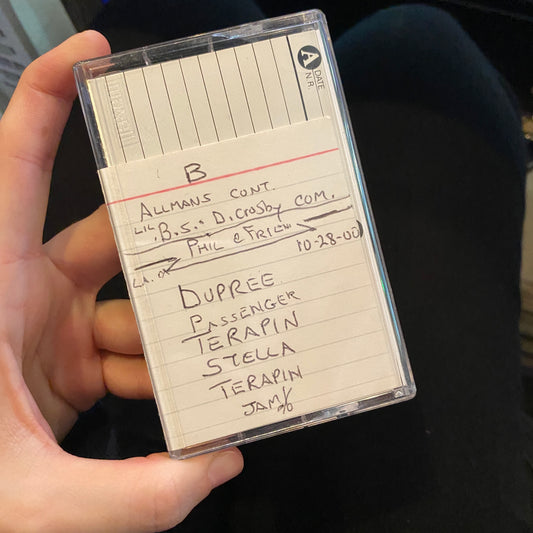 A DATE
N.R.
B
ALLMANS CONT.
LIL B.S.: D. CROSBY COM.
PHIL & FRIEN
L.A. CA 10-28-00
DUPREE
PASSENGER
TERAPIN
STELLA
TERAPIN
JAM